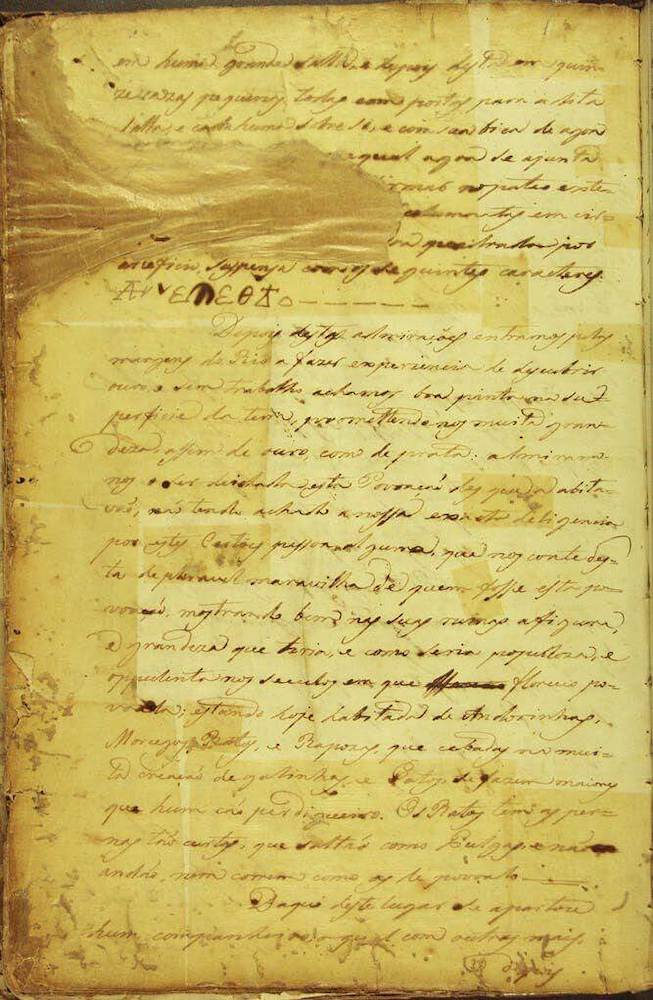 em huma grande salla, e depois desta em quin-
ze cazas pequenas, todas com portas para a dita
salla, e cada huma sobre si, e com sua bica de agoa
a qual agoa se ajunta
no pateo exte-
columnatas em cir-
quadrada por
arteficio, suspensa com os seguintes caracteres
Depois destas admiraçoẽs entramos pelas
margens do Rio a fazer experiencia de descubrir
ouro e sem trabalho achamos boa pinta na su-
perficie da terra, promettendonos muita gran-
deza, assim de ouro, como de prata: admiramo-
nos o ser deichada esta Povoaçaõ dos que a abita-
vaõ, naõ tendo achado a nossa exacta deligencia
por estes Certoẽs pessoa alguma, que nos conte des-
ta deploravel maravilha de quem fosse esta po-
voaçaõ, mostrando bem nas suas ruinas a figura,
e grandeza que teria, e como seria populoza, e
oppulenta nos seculos em que floreceo po-
voada; estando hoje habitada de Andorinhas,
Morcegos, Ratos, e Rapozas, que cebadas na mui-
ta creaçaõ de galinhas, e Patos, se fazem maiores
que hum caõ perdigueiro. Os Ratos tem as per-
nas taõ curtas, que saltaõ como Pulgas, e naõ
andaõ, nem correm como os de povoado
Daqui deste lugar se apartou
hum companheiro, o qual com outros mais,
depois